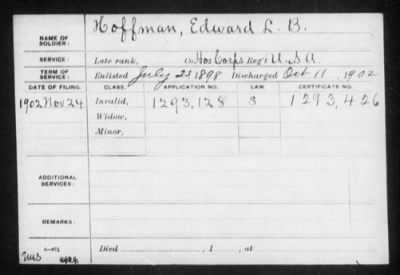 NAME OF SOLDIER: Hoffman, Edward L. B.
SERVICE: Late rank, Co. Hos Corps Reg't U.S.A
TERM OF SERVICE: Enlisted July 23 1898 Discharged Oct 11, 1902
DATE OF FILING. CLASS. APPLICATION NO. LAW. CERTIFICATE NO.
1902 Nov 24 Invalid, 1293,128 S 1293,426
Widow,
Minor,
ADDITIONAL SERVICES:
REMARKS:
Died , 1 , at